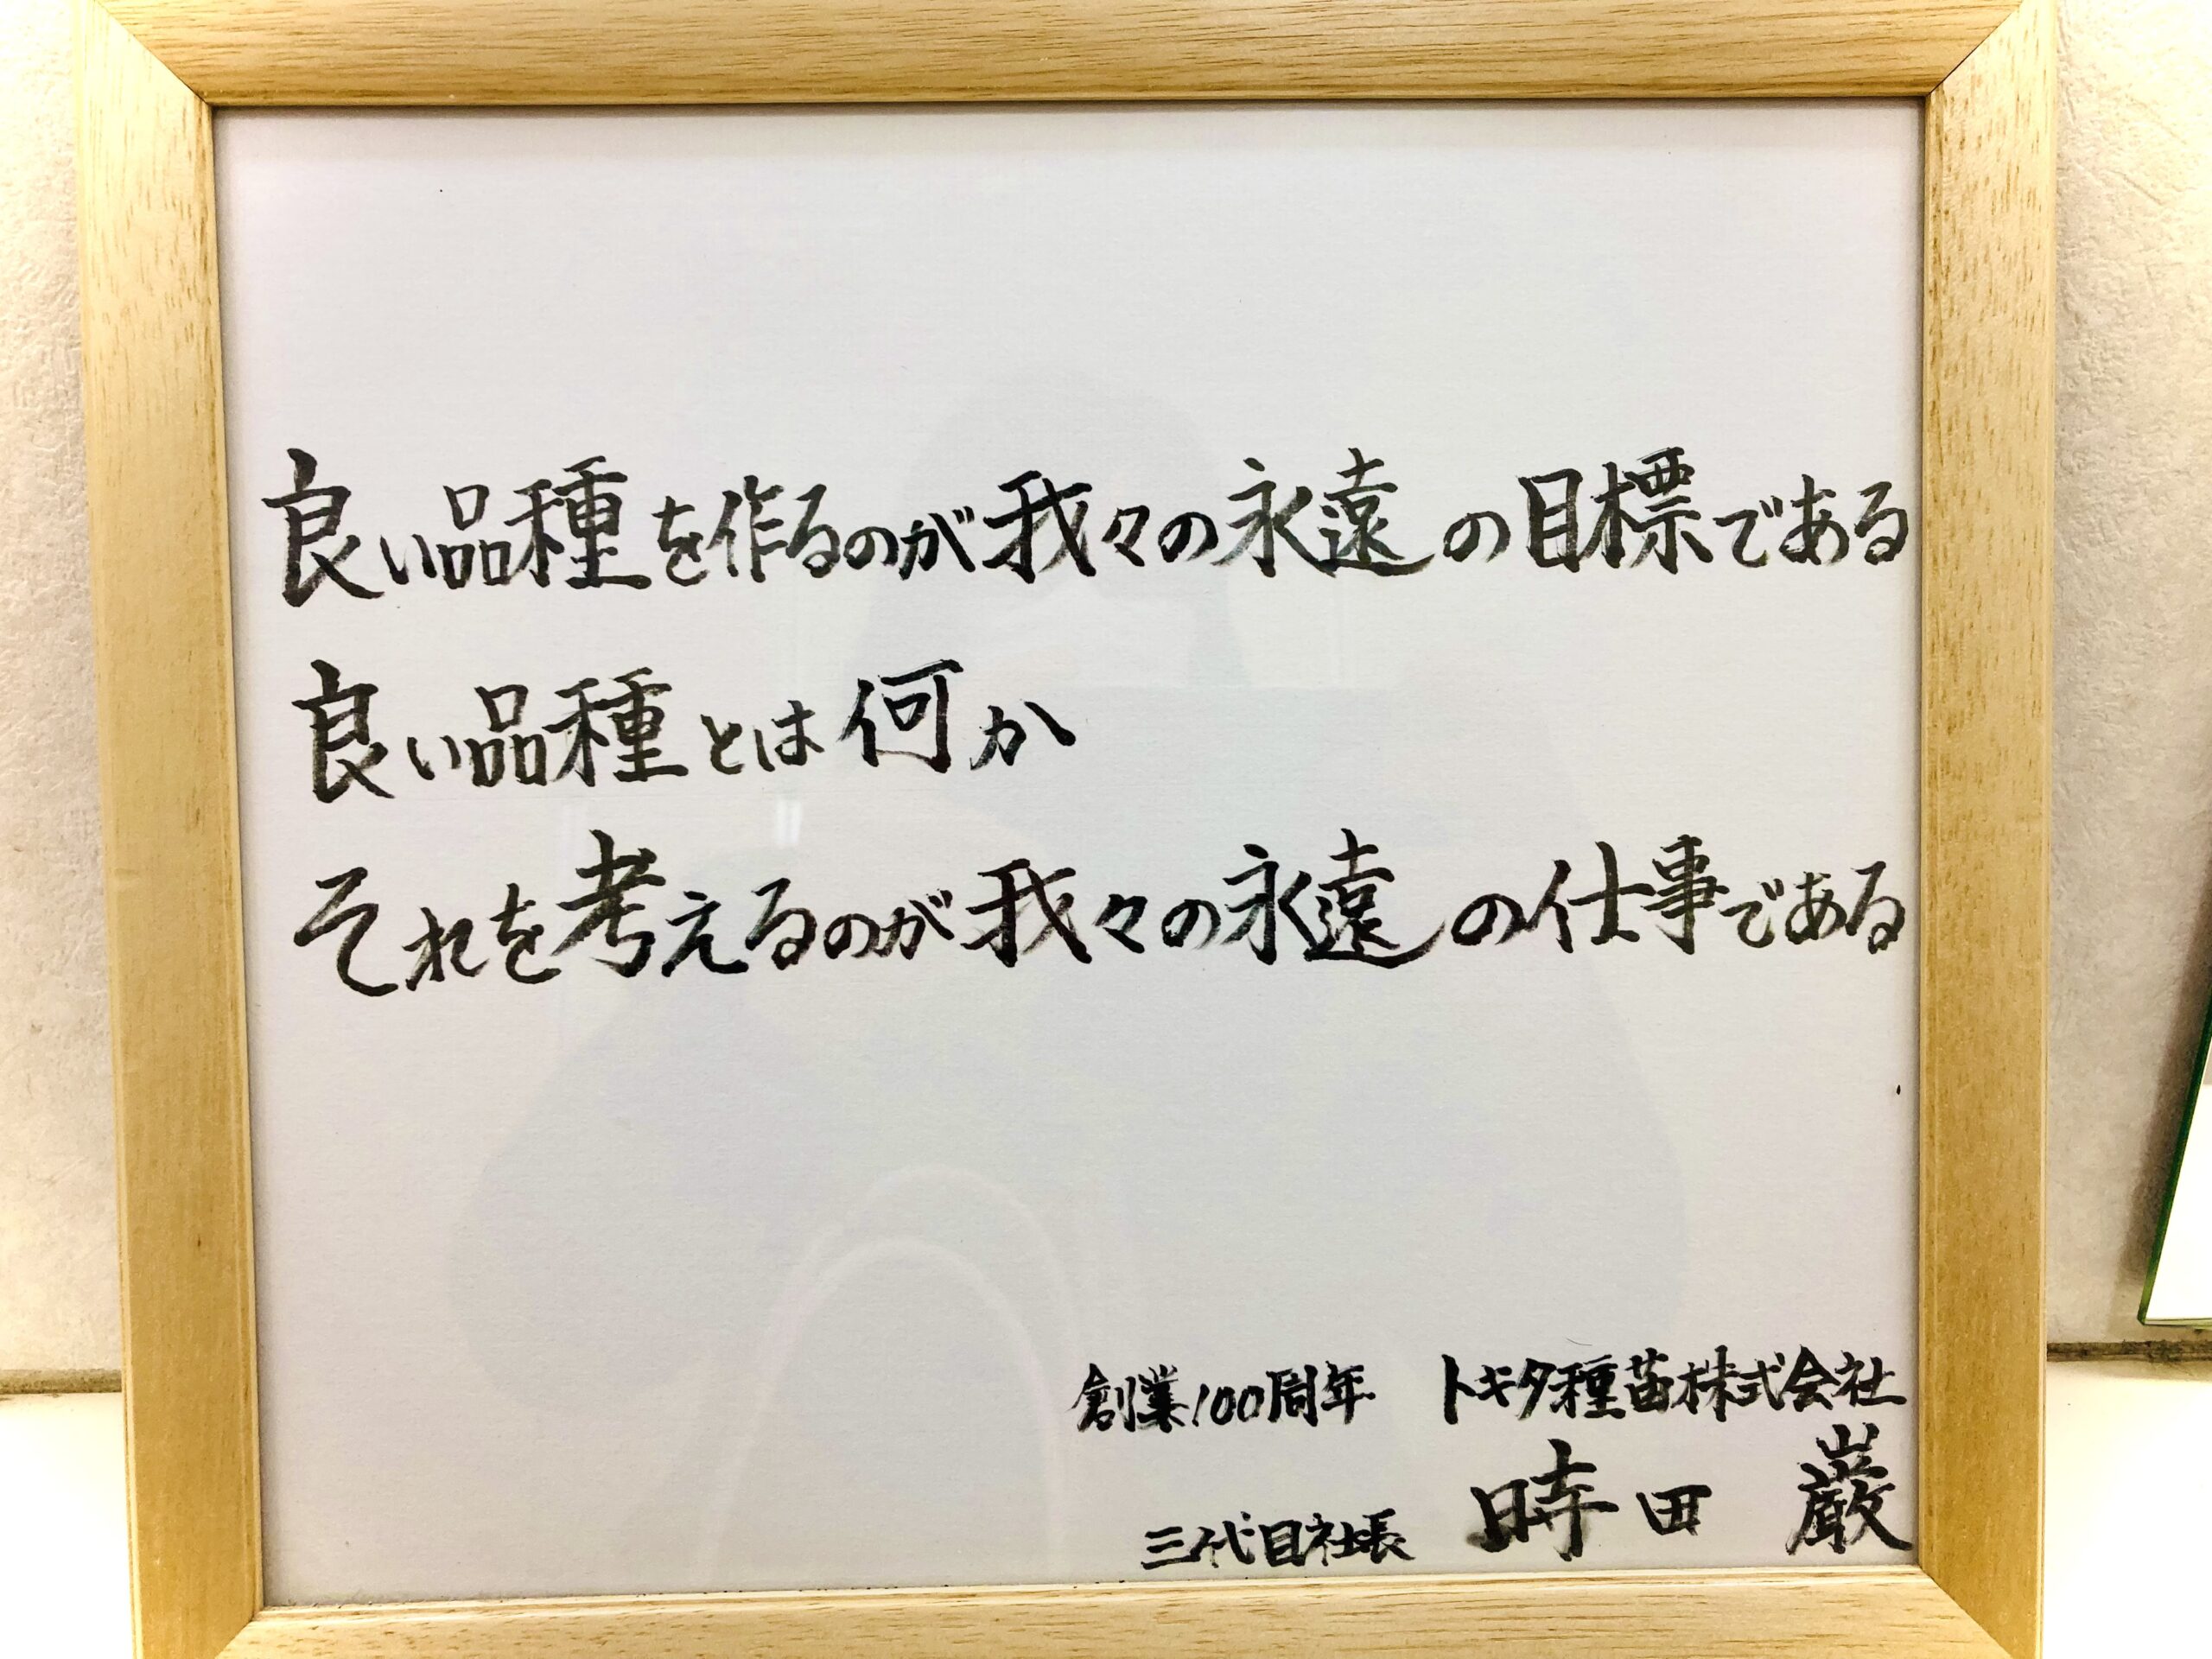 良い品種を作るのが我々の永遠の目標である
良い品種とは何か
それを考えるのが我々の永遠の仕事である
創業100周年 トキタ種苗株式会社
三代目社長 時田 巌